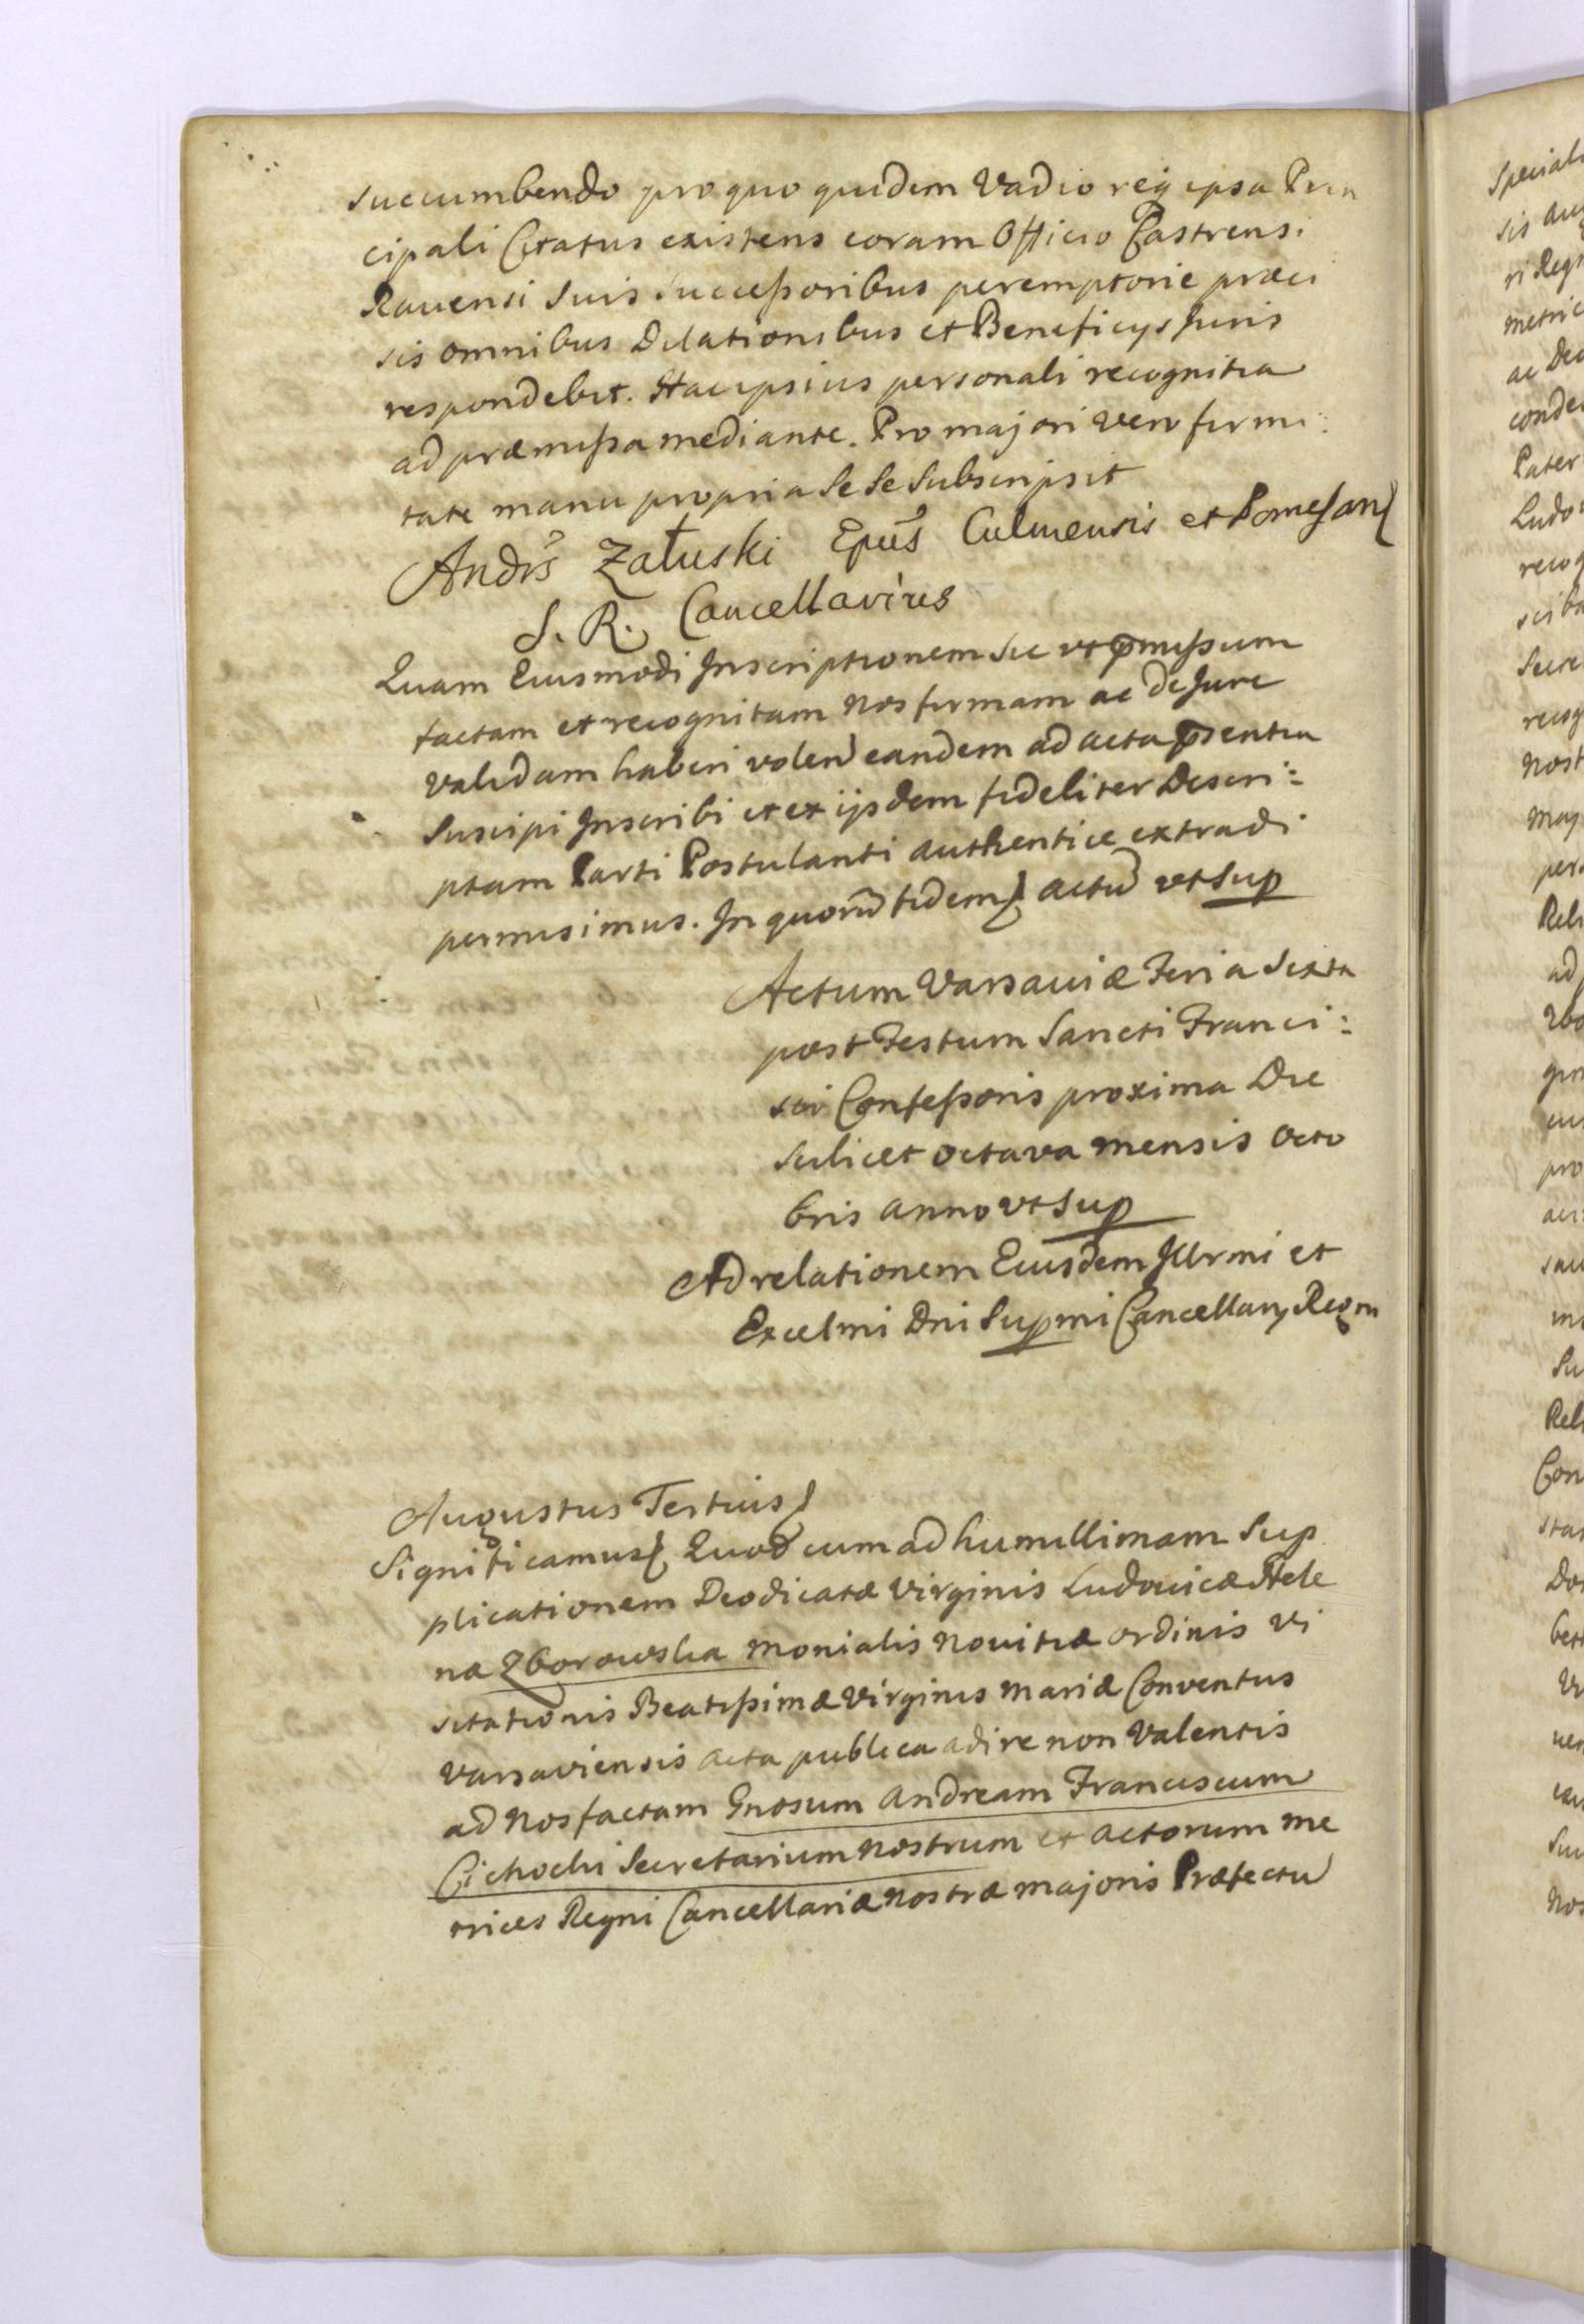 succumbendo pro quo quidem Vadio req ipsa Prin
cipali Citatus existens coram Officio Castrensi
Rauensi suis Successoribus peremptorie præci
sis omnibus Dilationibus et Beneficys Juris
respondebit. Hac ipsius personali recognitia
ad præmissa mediante. Pro majori vero firmi:
tate manu propria Se Se Subscripsit
Andrs Załuski Epus Culmensis et Pomesan
S. R. Cancellarius
Quam Eiusmodi Inscriptionem sic ut pmissum
factam et recognitam nos firmam ac de Jure
validam haberi volen eandem ad acta psentia
Suscipi Inscribi et ex ijsdem fideliter Descri:
ptam Parti Postulanti authentice extradi
permisimus. In quorũ fidem actũ ut Sup
Actum Varsaviæ Feria Sexta
post Festum Sancti Franci:
sci Confessoris proxima Die
scilicet octava mensis octo
bris anno ut Sup
Ad relationem Eiusdem Illrmi et
Excelmi Dni Supmi Cancellary Regni
Augustus Tertius
Significamus Quod cum ad humillimam Sup
plicationem Deodicatæ Virginis Ludovicæ Hele
næ Zborowska monialis novitiæ ordinis Vi
sitationis Beatissimæ Virginis Mariæ Conventus
Varsaviensis acta publica adire non valentis
ad nos factam Gnosum Andream Franciscum
Cichocki Secretarium nostrum et actorum me
trices Regni Cancellariæ nostræ majoris Præfectũ